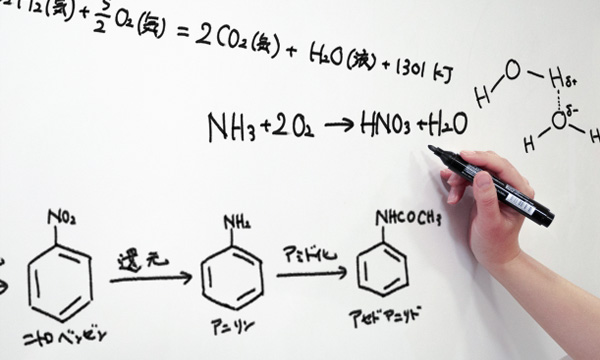 H₂(気)+5/2 O₂(気) = 2CO₂(気) + H₂O(液) + 1301 kJ
NH₃+2O₂ → HNO₃+H₂O
H O H δ+
δ- O
H H
NO₂ 還元 NH₂ アミド化 NHCOCH₃
ニトロベンゼン アニリン アセトアニリド